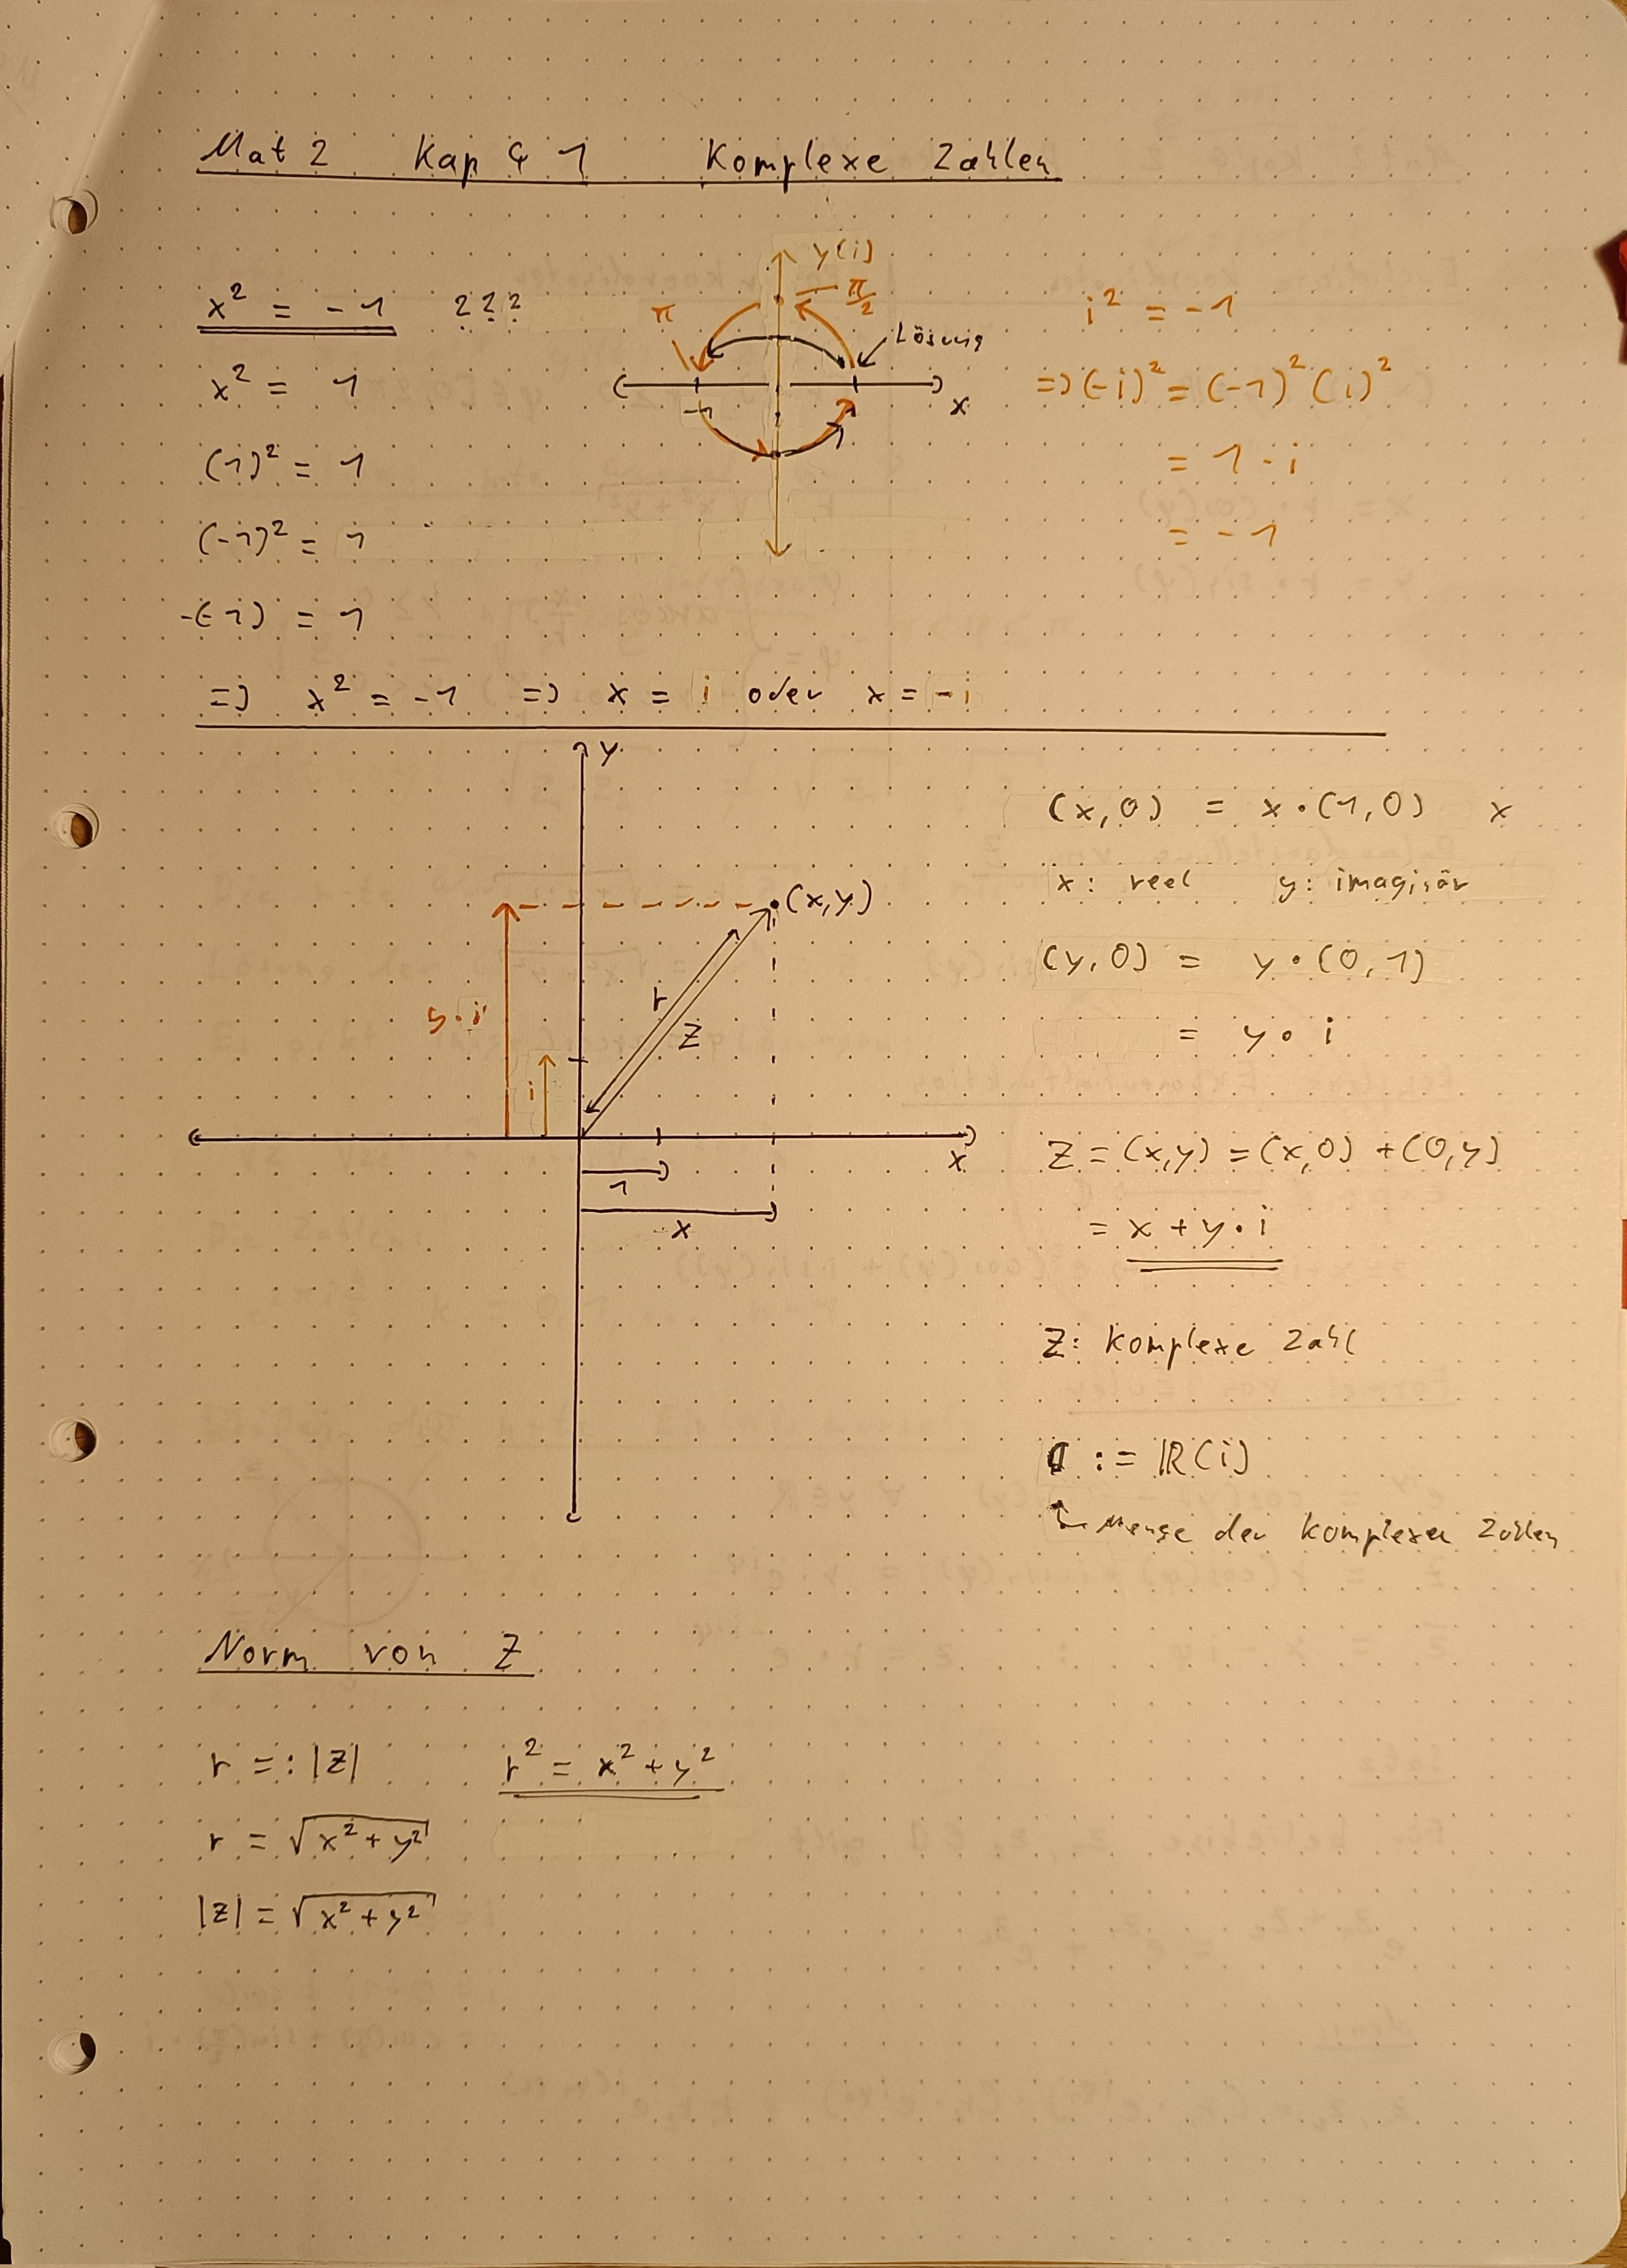 Mat 2 Kap 4 1 Komplexe Zahlen
x² = -1 ???
x² = 1
(1)² = 1
(-1)² = 1
-(-1) = 1
y(i)
π
π/2
Lösung
-1
x
i² = -1
=> (-i)² = (-1)² (i)²
= 1 · i
= -1
=> x² = -1 => x = i oder x = -i
y
(x,y)
r
z
y · i
i
1
x
x
(x,0) = x · (1,0) x
x: reel y: imaginär
(y,0) = y · (0,1)
= y · i
z = (x,y) = (x,0) + (0,y)
= x + y · i
z: Komplexe Zahl
ℂ := ℝ(i)
Menge der Komplexen Zahlen
Norm von z
r =: |z| r² = x² + y²
r = √x² + y²
|z| = √x² + y²